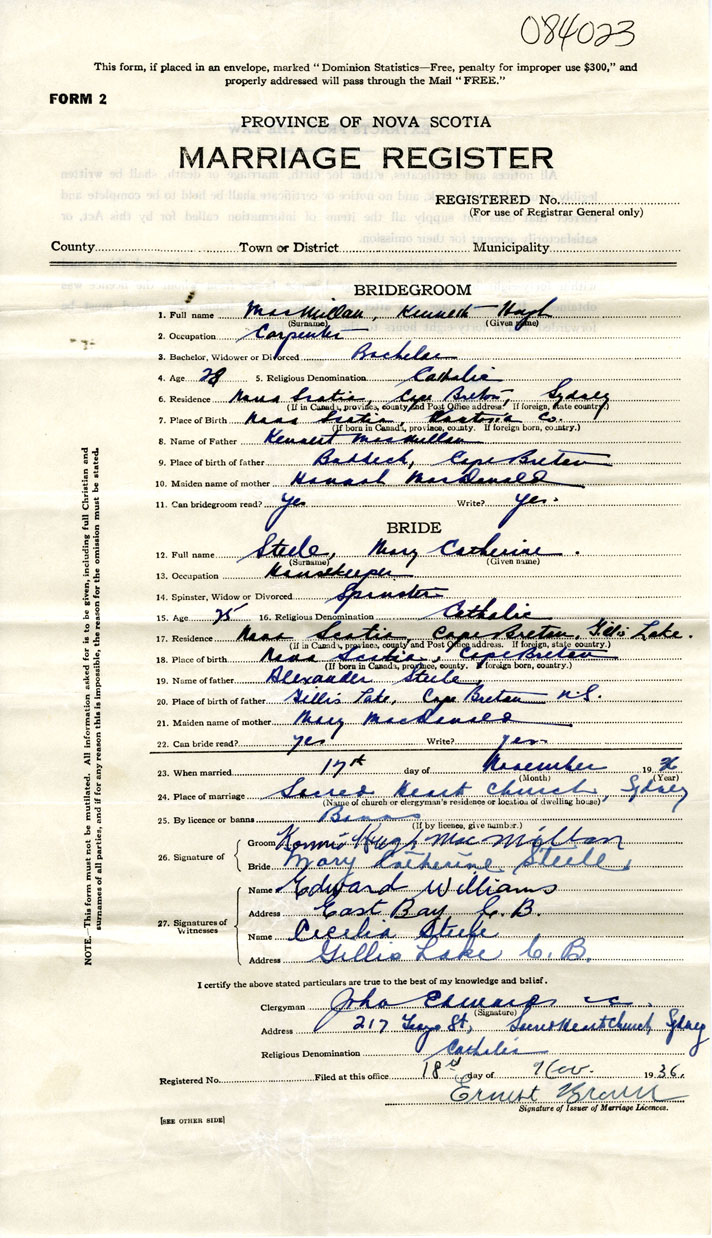 084023
This form, if placed in an envelope, marked "Dominion Statistics—Free, penalty for improper use $300," and
properly addressed will pass through the Mail "FREE."
FORM 2
PROVINCE OF NOVA SCOTIA
MARRIAGE REGISTER
REGISTERED No.
(For use of Registrar General only)
County Town or District Municipality
BRIDEGROOM
1. Full name MacMillan, Kenneth Hugh
(Surname) (Given name)
2. Occupation Carpenter
3. Bachelor, Widower or Divorced Bachelor
4. Age 28 5. Religious Denomination Catholic
6. Residence Nova Scotia, Cape Breton, Sydney
(If in Canada, province, county and Post Office address. If foreign, state country.)
7. Place of Birth Nova Scotia, Co.
(If born in Canada, province, county. If foreign born, country.)
8. Name of Father MacMillan
9. Place of birth of father Baddeck, Cape Breton
10. Maiden name of mother Hannah MacDonald
11. Can bridegroom read? Yes Write? Yes.
BRIDE
12. Full name Steele, Mary Catherine.
(Surname) (Given name)
13. Occupation Housekeeper
14. Spinster, Widow or Divorced Spinster
15. Age 25 16. Religious Denomination Catholic
17. Residence Nova Scotia, Cape Breton, Gillis Lake.
(If in Canada, province, county and Post Office address. If foreign, state country.)
18. Place of birth Nova Scotia, Cape Breton
(If born in Canada, province, county. If foreign born, country.)
19. Name of father Alexander Steele
20. Place of birth of father Gillis Lake, Cape Breton N.S.
21. Maiden name of mother Mary MacDonald
22. Can bride read? yes Write? yes
23. When married 17th day of November 1936
(Month) (Year)
24. Place of marriage Sacred Heart Church, Sydney
(Name of church or clergyman's residence or location of dwelling house)
25. By licence or banns Banns
(If by licence, give number.)
26. Signature of
Groom Hugh MacMillan
Bride Mary Catherine Steele
27. Signatures of Witnesses
Name Edward Williams
Address East Bay C.B.
Name Cecilia Steele
Address Gillis Lake C.B.
I certify the above stated particulars are true to the best of my knowledge and belief.
Clergyman John
(Signature)
Address 217 St, Sacred Heart Church, Sydney
Religious Denomination Catholic
Registered No. Filed at this office 18th day of Nov. 1936.
Ernest Brown
Signature of Issuer of Marriage Licences.
[SEE OTHER SIDE]
NOTE. This form must not be mutilated. All information asked for is to be given, including full Christian and
surnames of all parties, and if for any reason this is impossible, the reason for the omission must be stated.